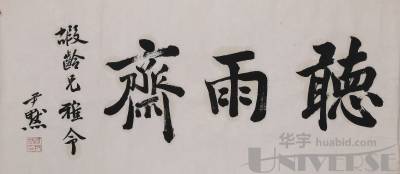 聽雨齋
嘏齡兄雅令
尹默
华宇 huabid.com
UNIVERSE